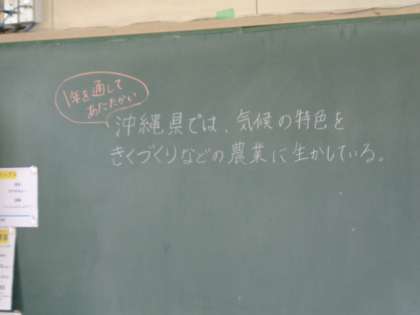 1年を通して
あたたかい
沖縄県では、気候の特色を
きくづくりなどの農業に生かしている。